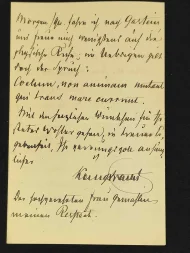 Morgen früh fahre ich nach Gastein
und freue mich wenigstens auf die
physische Ruhe, im Uebrigen gilt
doch der Spruch:
Coelum, non animum mutant
qui trans mare currunt.
Mit den herzlichsten Wünschen für Ihr
Wohlergehen, in
Ihr anhäng-
licher
Der hochverehrten Frau Gemahlin
meinen Respect.